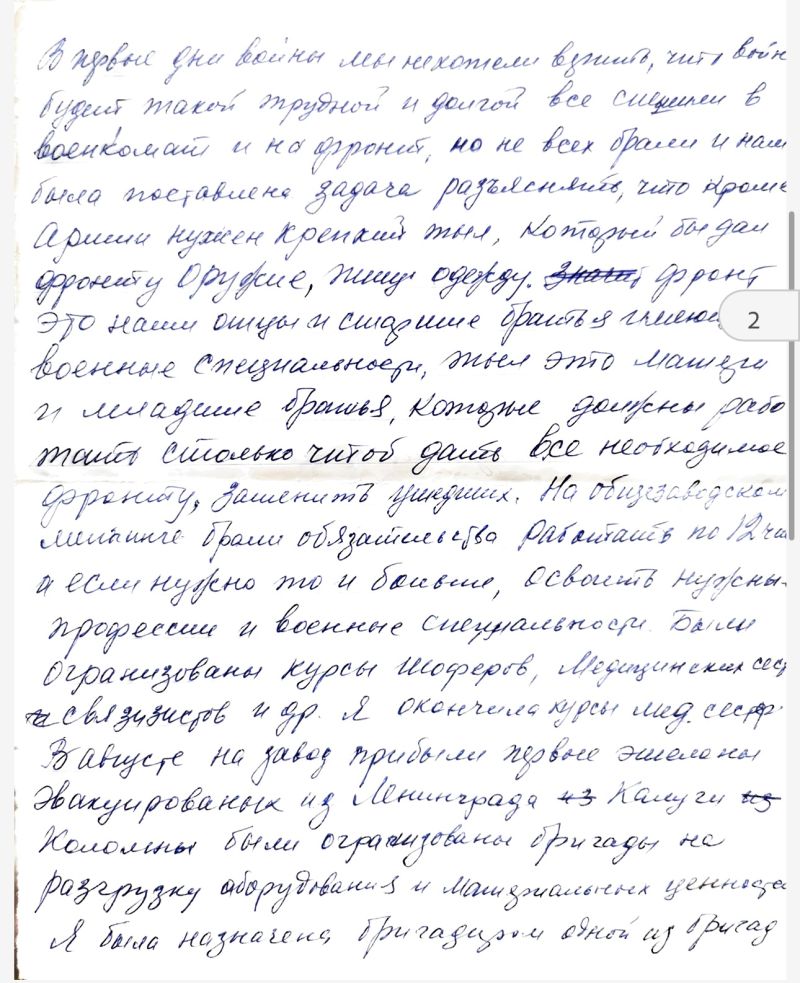 В первые дни войны мы нехотели верить, что войн
будет такой трудной и долгой все спешили в
военкомат и на фронт, но не всех брали и нам
была поставлена задача разъяснять, что кроме
Армии нужен крепкий тыл, который бы дал
фронту Оружие, пищу одежду. Значит фронт
это наши отцы и старшие братья имеющ
военные специальности, тыл это матери
и младшие братья, которые должны рабо
тать столько чтоб дать все необходимое
фронту, заменить ушедших. На общезаводском
митинге брали обязательства работать по 12 ча
а если нужно то и больше, освоить нужны
профессии и военные специальности. Были
огранизованы курсы шоферов, Медицинских сест
и связизистов и др. Я окончила курсы мед. сестр.
В августе на завод прибыли первые эшелоны
Эвакуированых из Ленинграда из Калуги из
Коломны были огранизованы бригады на
разгрузку оборудования и материальных ценносте
Я была назначена бригадиром одной из бригад
2